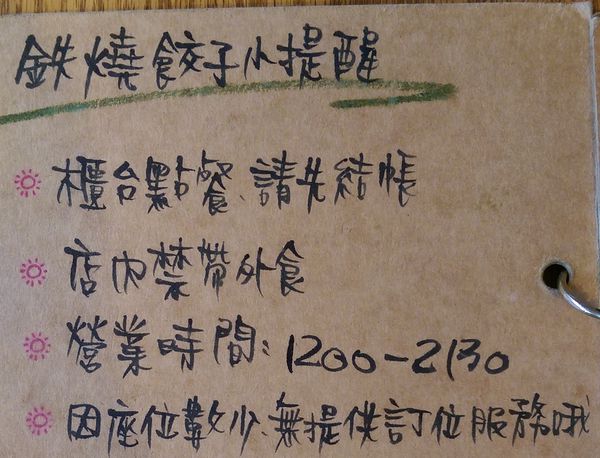 鉄燒餃子小提醒
櫃台點餐、請先結帳
店內禁帶外食
營業時間：1200-2130
因座位數少、無提供訂位服務哦